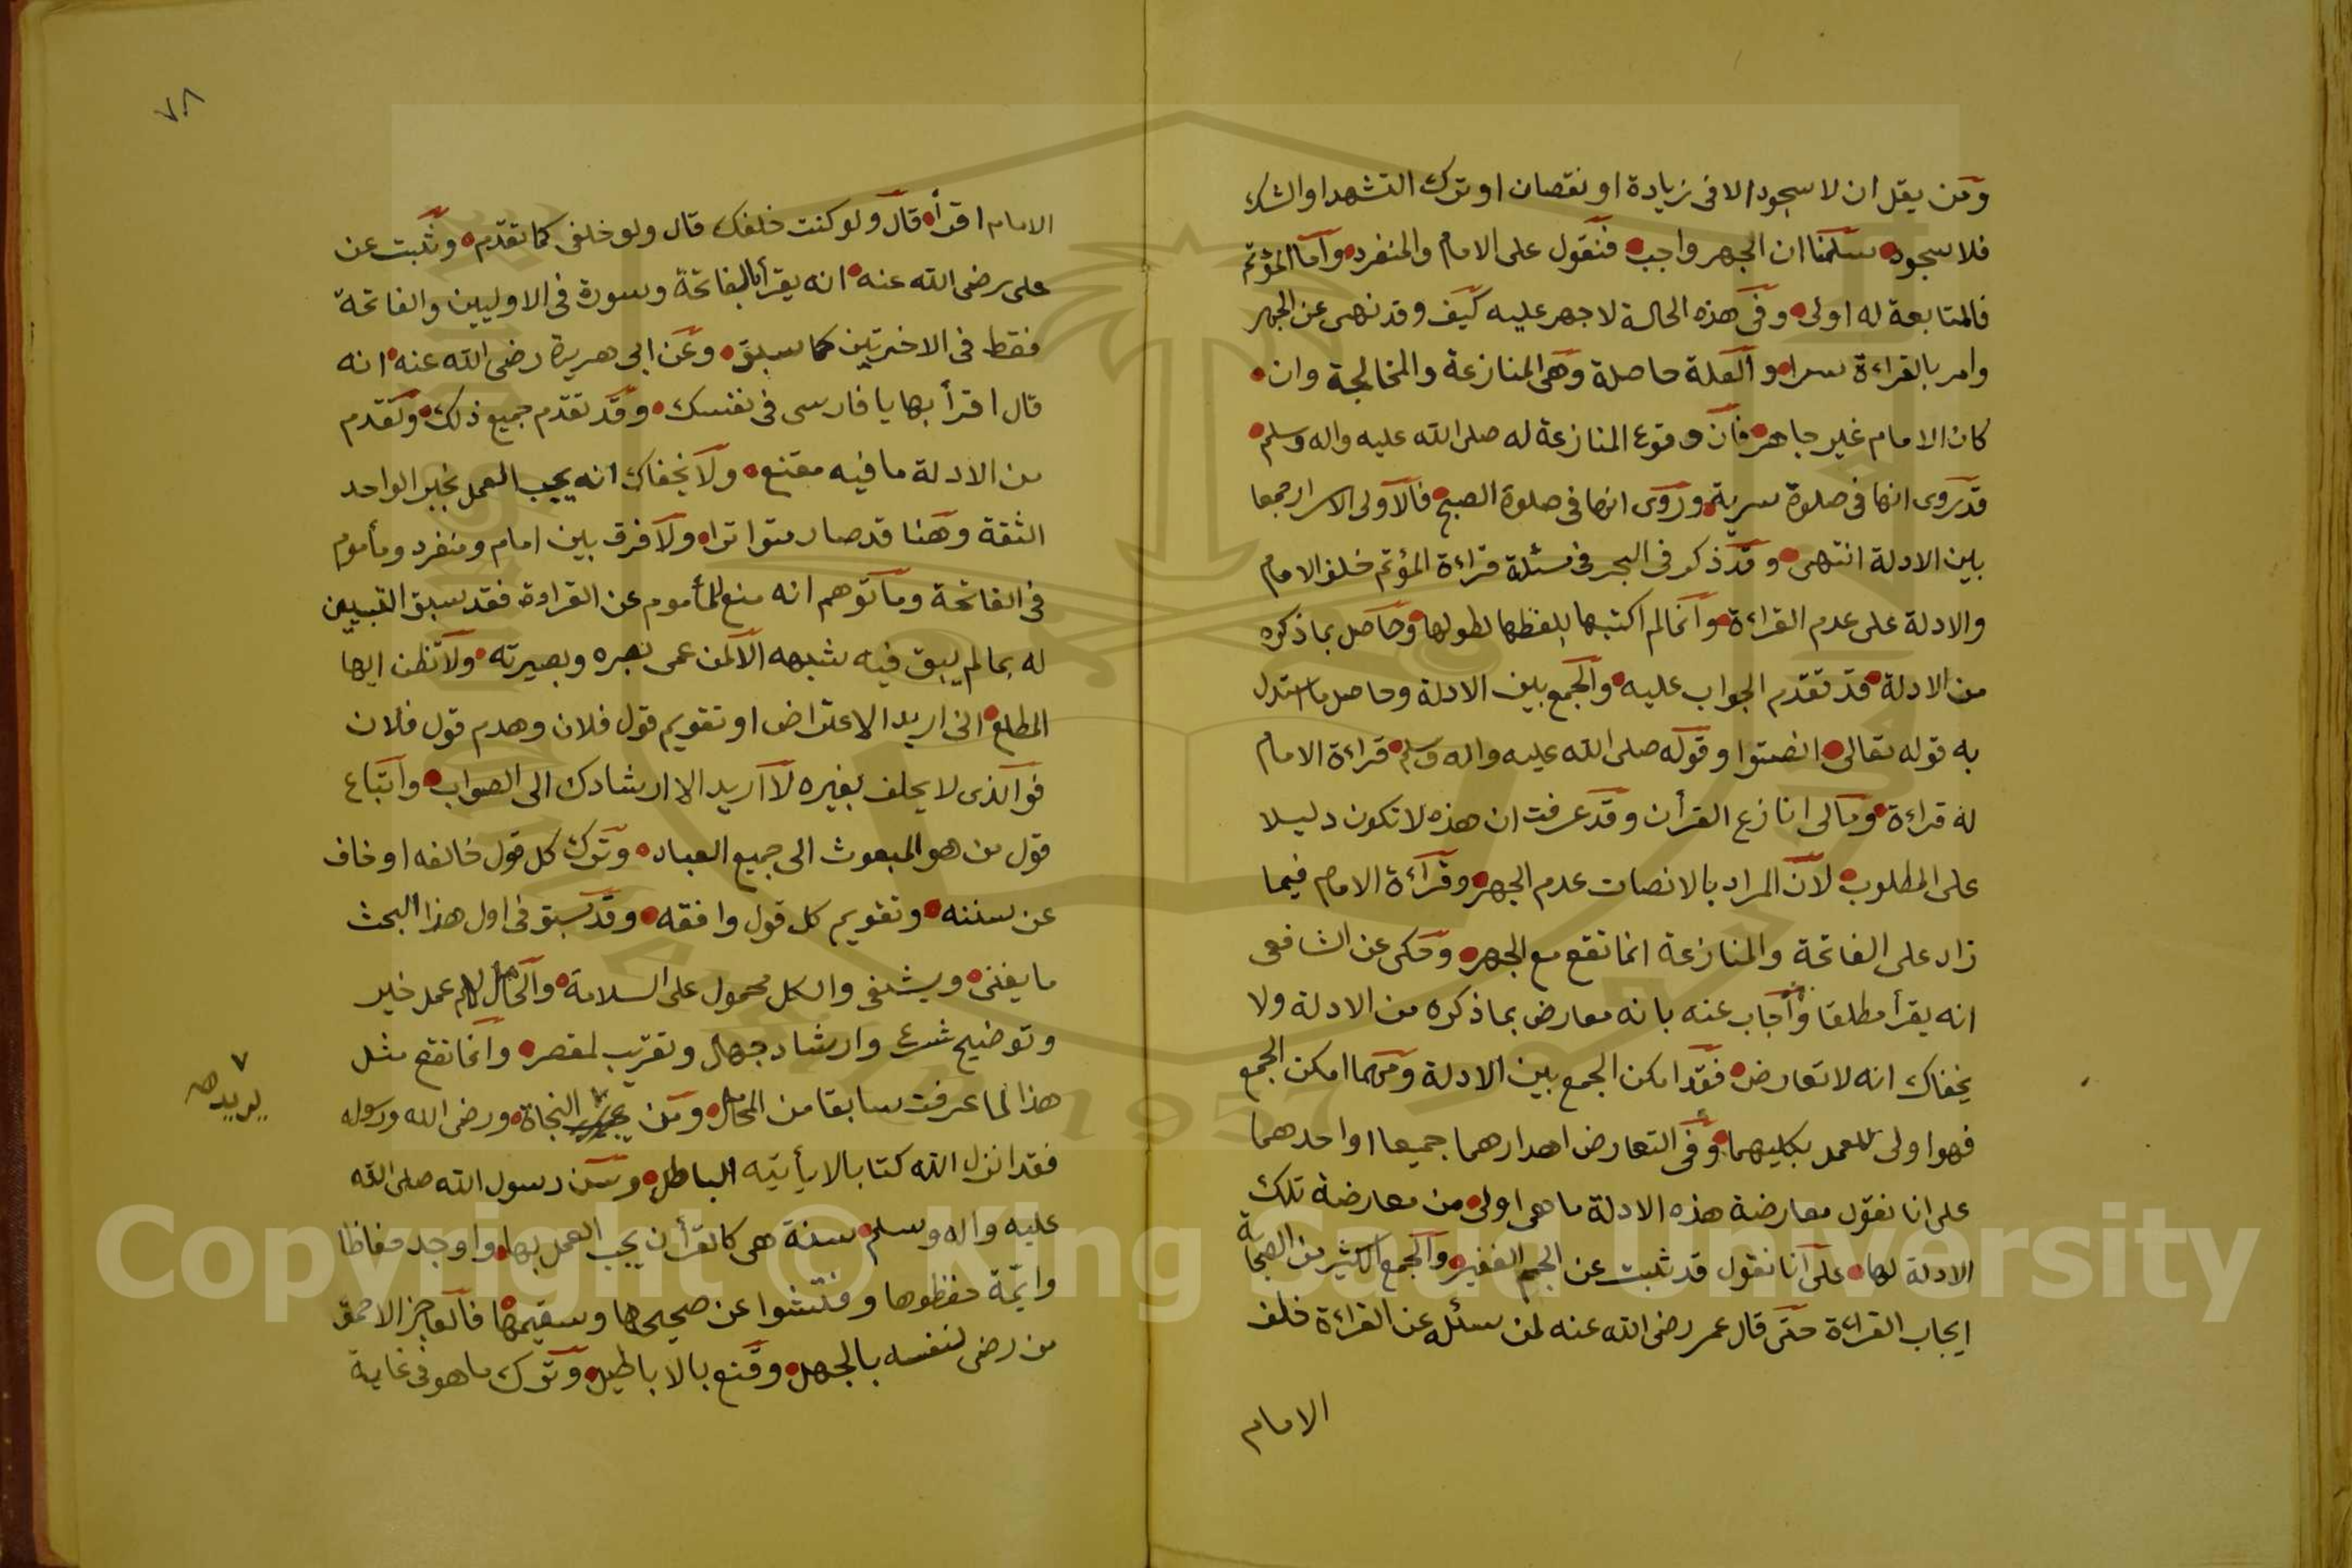 ومن يقل ان لا سجود الا فى زيادة او نقصان او ترك التشهد او الشك
فلا سجود سلمنا ان الجهر واجب فنقول على الامام والمنفرد واما المؤتم
فالمتابعة له اولى وفى هذه الحالة لا جهر عليه كيف وقد نهى عن الجهر
وامر بالقراءة سرا والعلة حاصلة وهى المنازعة والمخالجة وان
كان الامام غير جاهر فان وقوع المنازعة له صلى الله عليه واله وسلم
قد روى انها فى صلوة سرية وروى انها فى صلوة الصبح فالاولى الاسرار جمعا
بين الادلة انتهى وقد ذكر فى البحر فى مسئلة قراءة المؤتم خلف الامام
والادلة على عدم القراءة وانما لم اكتبها بلفظها لطولها وحاصل ما ذكره
من الادلة قد تقدم الجواب عليه والجمع بين الادلة وحاصل ما استدل
به قوله تعالى انصتوا وقوله صلى الله عليه واله وسلم قراءة الامام
له قراءة ومالى انازع القرأن وقد عرفت ان هذه لا تكون دليلا
على المطلوب لان المراد بالانصات عدم الجهر وقراءة الامام فيما
زاد على الفاتحة والمنازعة انما تقع مع الجهر وحكى عن الشافعى
انه يقرأ مطلقا وأجاب عنه بانه معارض بما ذكره من الادلة ولا
يخفاك انه لا تعارض فقد امكن الجمع بين الادلة ومهما امكن الجمع
فهو اولى للعمل بكليهما وفى التعارض اهدارهما جميعا او احدهما
على انا نقول معارضة هذه الادلة ما هى اولى من معارضة تلك
الادلة لها على انا نقول قد ثبت عن الجم الغفير والجمع الكثير من الصحابة
ايجاب القراءة حتى قال عمر رضى الله عنه لمن سئله عن القراءة خلف
الامام
٧٨
الامام اقرأ قال ولو كنت خلفك قال ولو خلفى كما تقدم وثبت عن
على رضى الله عنه انه يقرأ بالفاتحة وسورة فى الاوليين والفاتحة
فقط فى الاخرتين كما سبق وعن ابى هريرة رضى الله عنه انه
قال اقرأ بها يا فارسى فى نفسك وقد تقدم جميع ذلك وتقدم
من الادلة ما فيه مقنع ولا يخفاك انه يجب العمل بخبر الواحد
الثقة وهنا قد صار متواترا ولا فرق بين امام ومنفرد ومأموم
فى الفاتحة وما توهم انه منع للمأموم عن القراءة فقد سبق التبيين
له بما لم يبق فيه شبهه الا لمن عمى بصره وبصيرته ولا تظن ايها
المطلع انى اريد الاعتراض او تقويم قول فلان وهدم قول فلان
فو الذى لا يحلف بغيره لا اريد الا ارشادك الى الصواب واتباع
قول من هو المبعوث الى جميع العباد وترك كل قول خالفه او خاف
عن سننه وتقويم كل قول وافقه وقد سبق فى اول هذا البحث
ما يغنى ويشفى والكل محمول على السلامة والحامل لهم عمل خير
وتوضيح شرع وارشاد جهال وتقريب لمقصر وانما تقع مثل
هذا لما عرفت سابقا من المحامل ومن النجاة ورضى الله ورسوله
يريد صح
فقد انزل الله كتابا لا يأتيه الباطل وسن رسول الله صلى الله
عليه واله وسلم سنة هى كالقرأن يجب العمل بها واوجد حفاظا
وائمة حفظوها وفتشوا عن صحيحها وسقيمها فالعاجز الاحمق
من رضى لنفسه بالجهل وقنع بالاباطيل وترك ما هو فى غاية
Copyright © King Saud University
1957